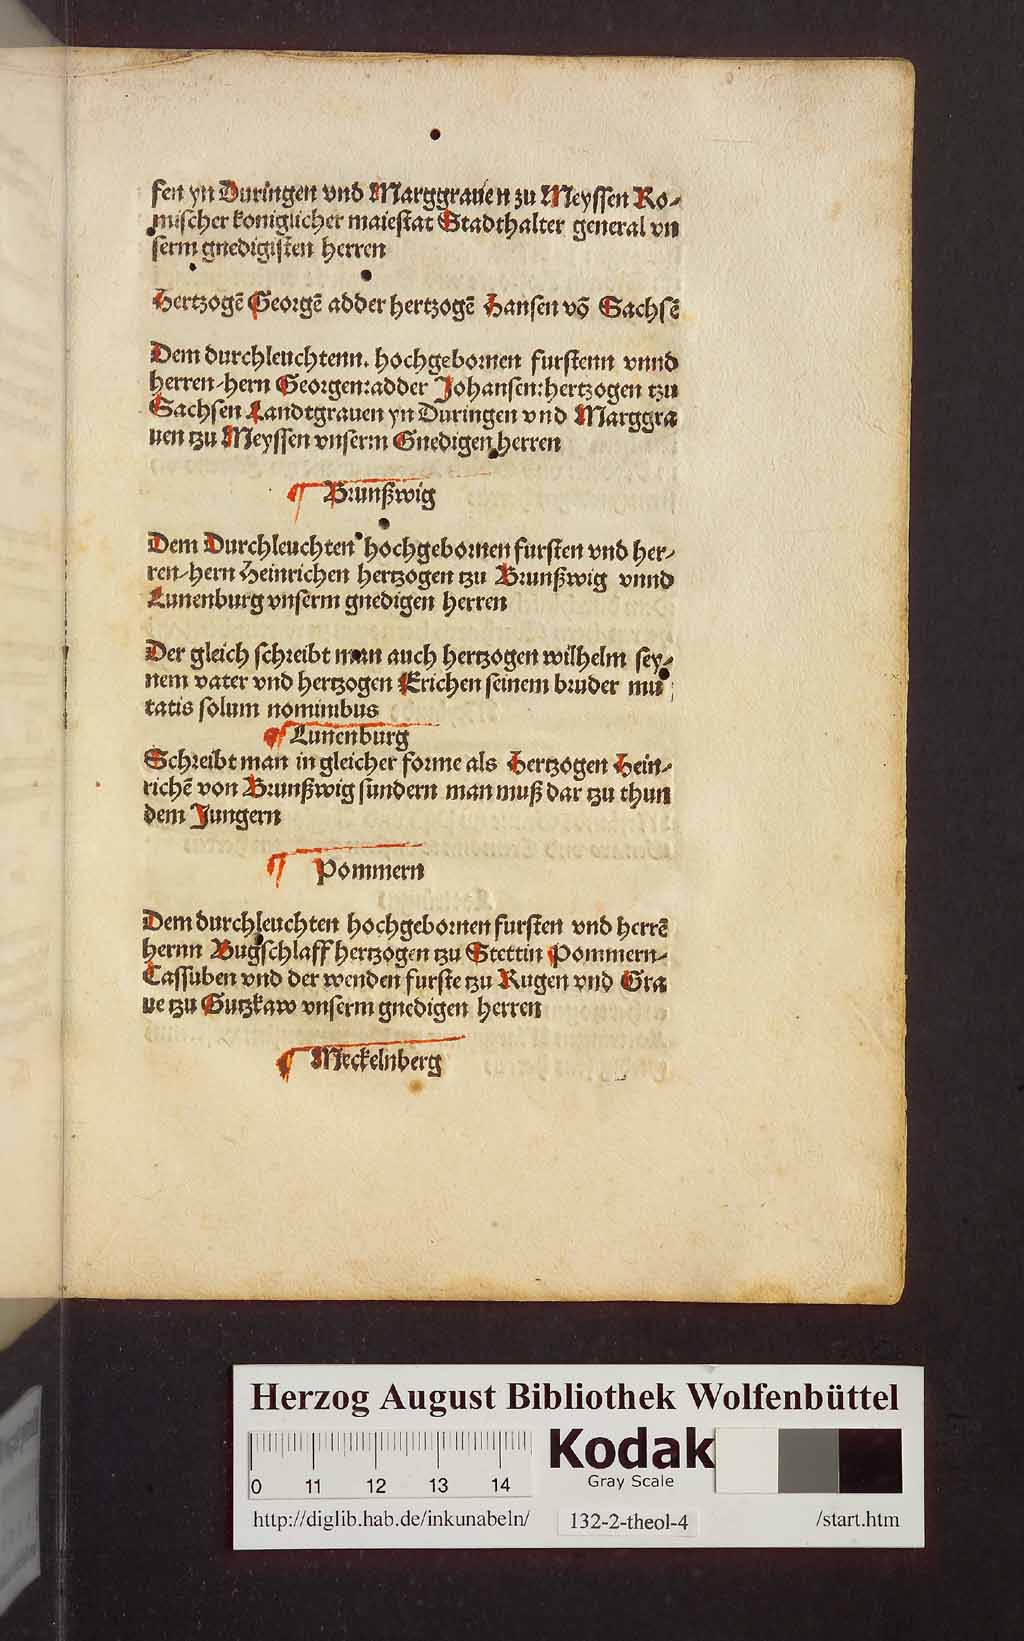 sen yn Duringen vnd Marggrauen zu Meyssen Ro⸗
mischer koniglicher maiestat Stadthalter general vn
serm gnedigisten herren
Hertzogē Georgē adder hertzogē Hansen vō Sachsē
Dem durchleuchtenn. hochgebornen furstenn vnnd
herren⸗hern Georgen:adder Johansen:hertzogen tzu
Sachsen Landtgrauen yn Duringen vnd Marggra
uen tzu Meyssen vnserm Gnedigen herren
¶ Brunßwig
Dem Durchleuchten hochgebornen fursten vnd her⸗
ren⸗hern Heinrichen hertzogen tzu Brunßwig vnnd
Lunenburg vnserm gnedigen herren
Der gleich schreibt man auch hertzogen wilhelm sey⸗
nem vater vnd hertzogen Erichen seinem bruder mu
tatis solum nominibus
¶ Lunenburg
Schreibt man in gleicher forme als Hertzogen Hein⸗
richē von Brunßwig sundern man muß dar tzu thun
dem Jungern
¶ Pommern
Dem durchleuchten hochgebornen fursten vnd herrē
hernn Bugschlaff hertzogen tzu Stettin Pommern⸗
Cassuben vnd der wenden furste tzu Rugen vnd Gra
ue tzu Gutzkaw vnserm gnedigen herren
¶ Meckelnberg
Herzog August Bibliothek Wolfenbüttel
0 11 12 13 14
Kodak
Gray Scale
http://diglib.hab.de/inkunabeln/ 132-2-theol-4 /start.htm